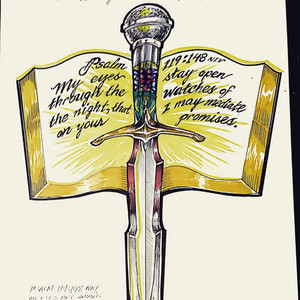 Psalm 119:148 NIV
My eyes stay open
through the the watches of
the night, that I may mediate
on your promises.
PSALM 119:148 NIV